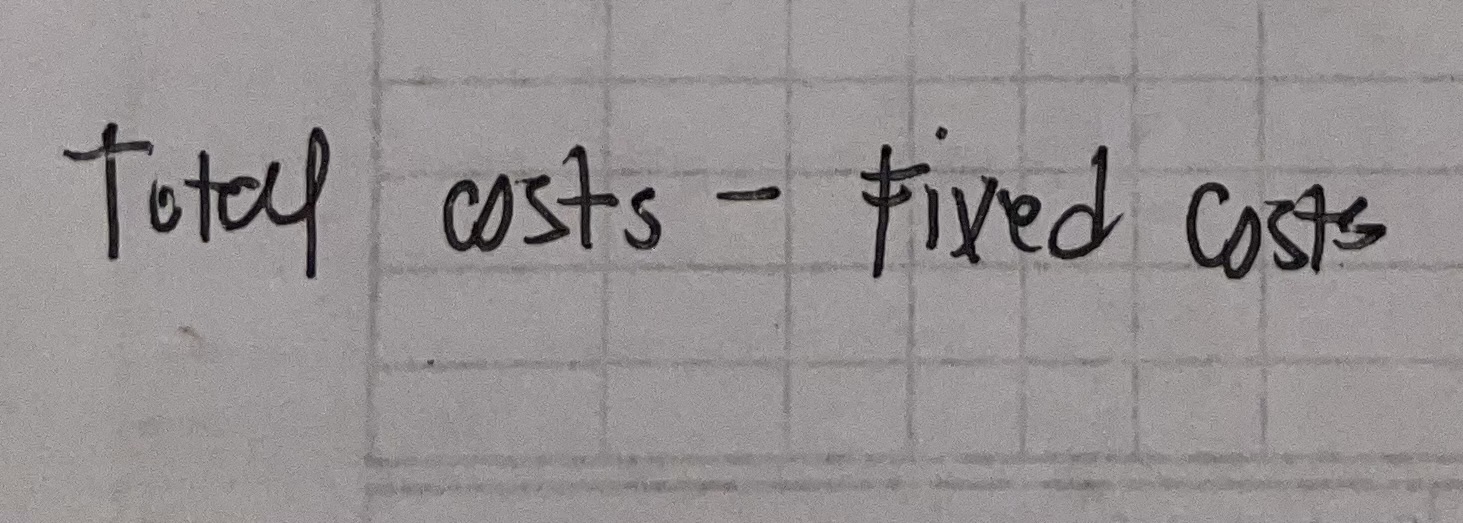 Total costs - Fixed costs